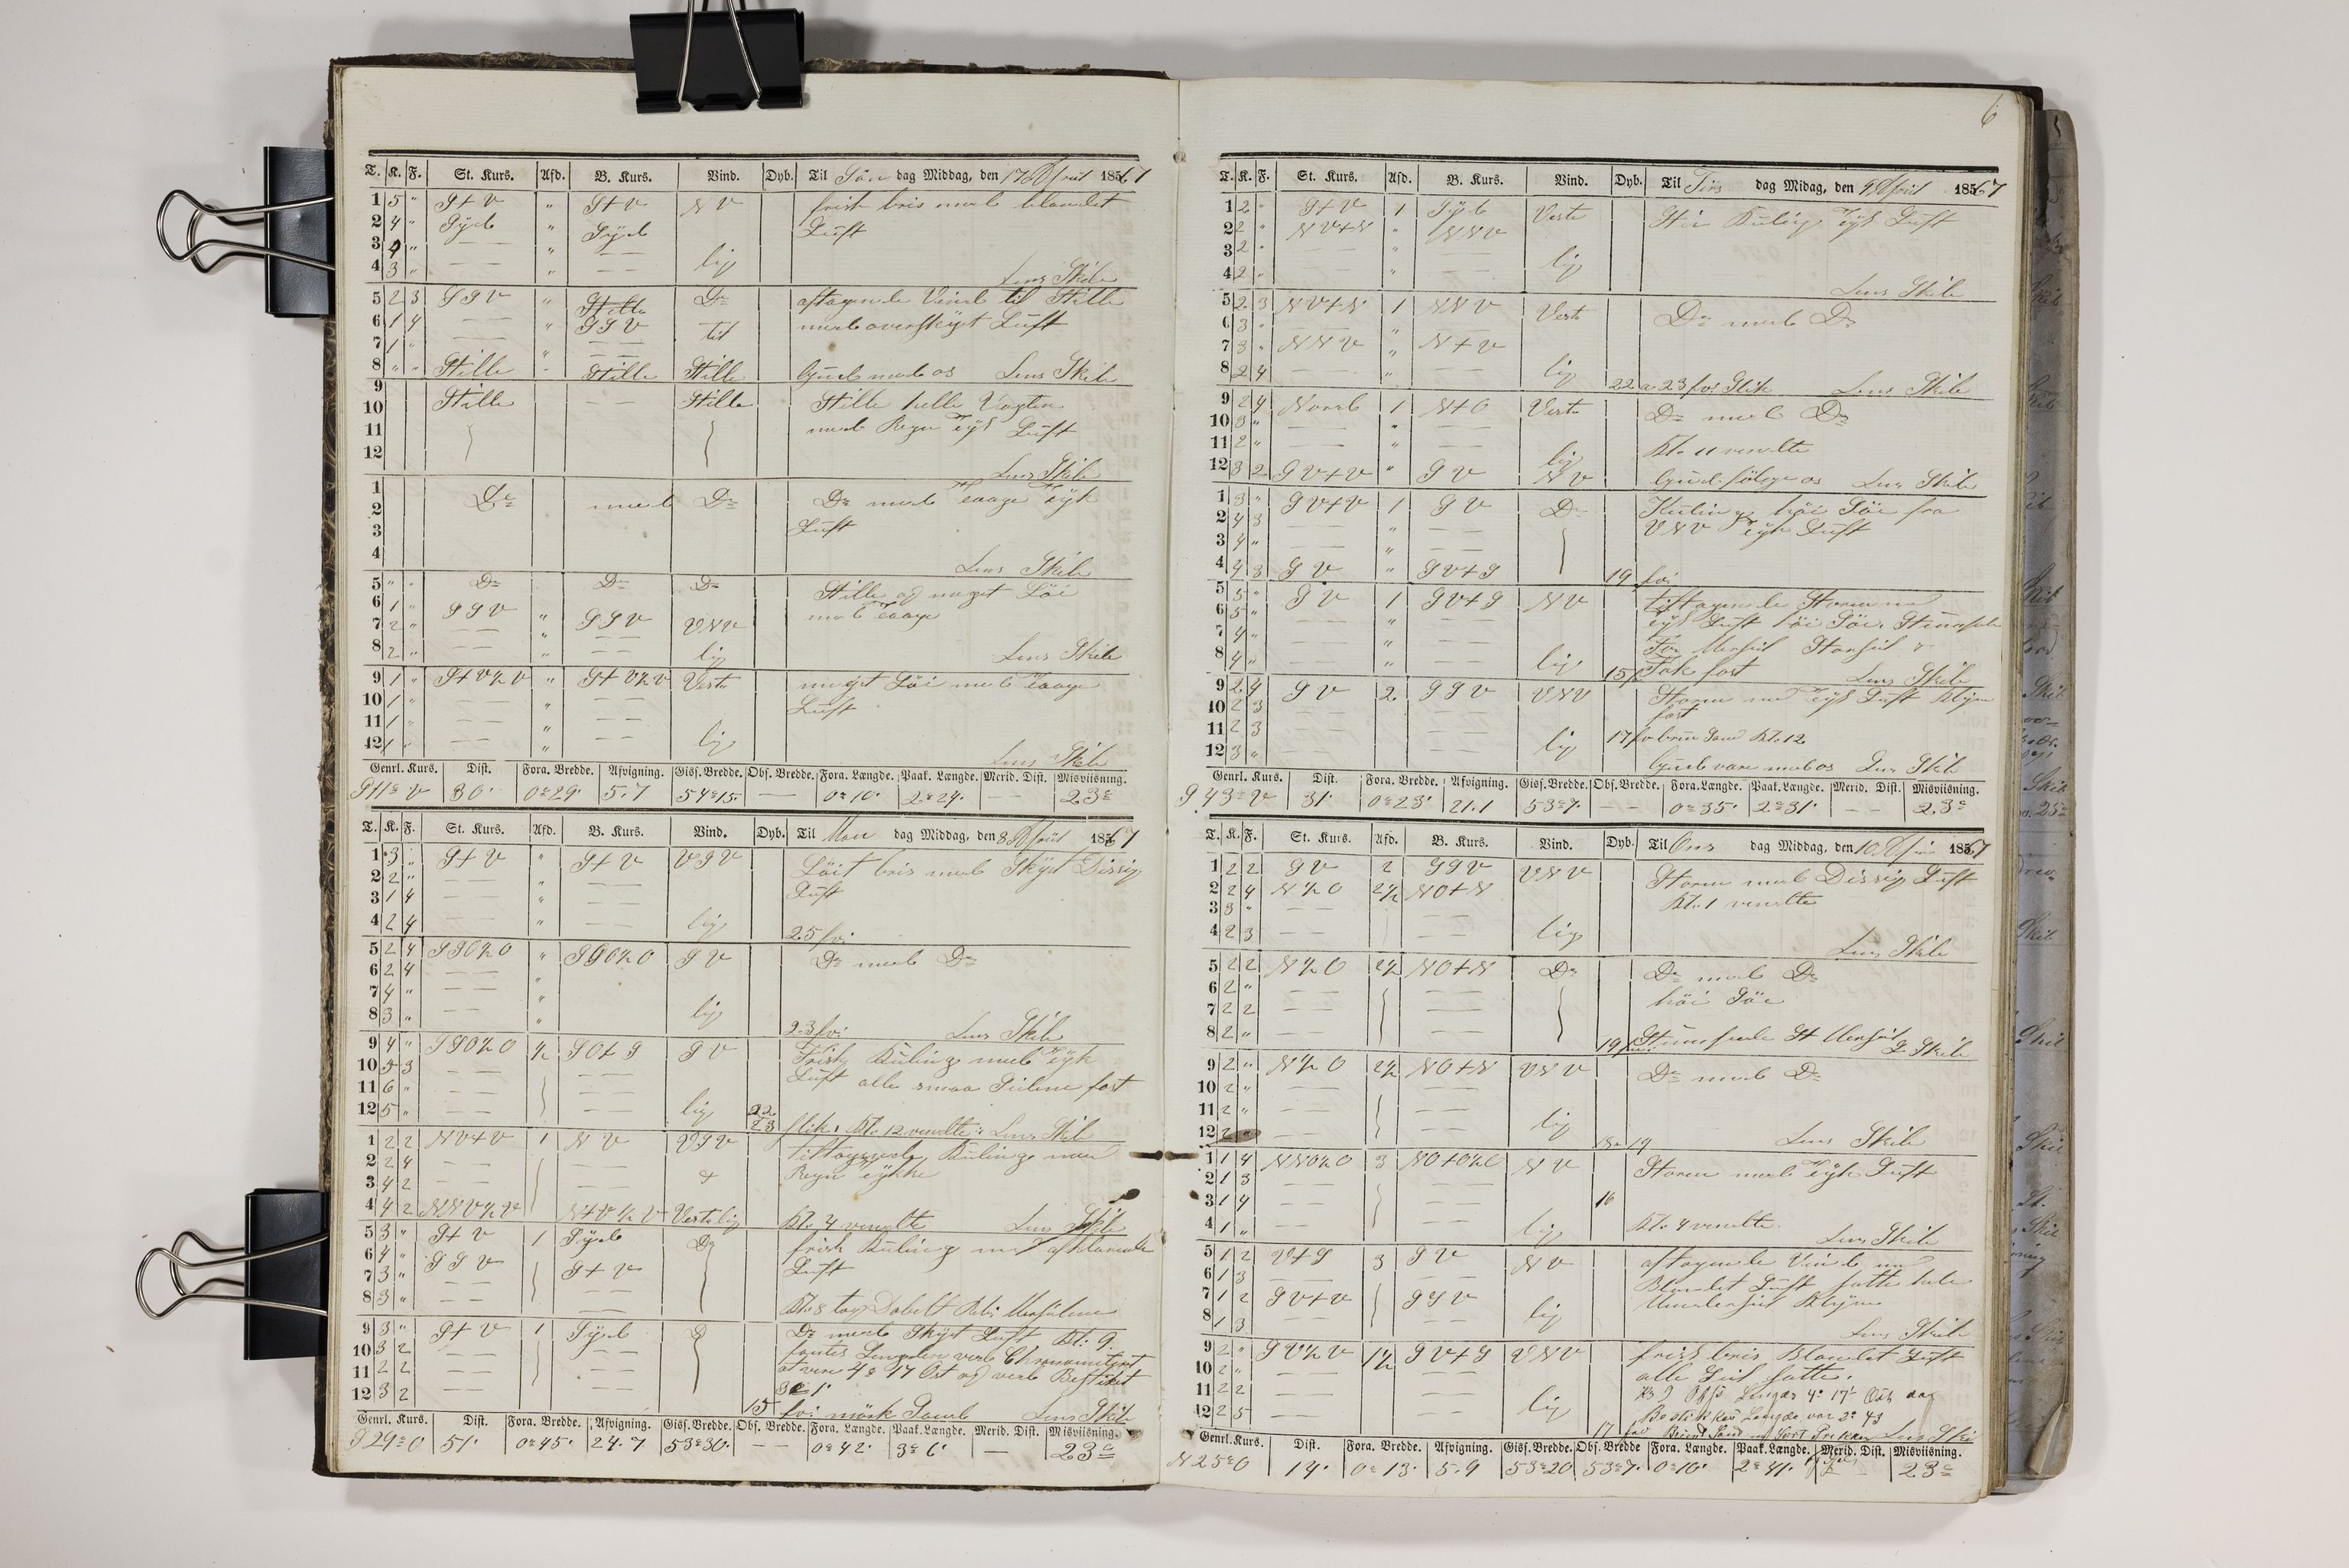 6
T. K. F. St. Kurs. Afd. B. Kurs. Vind. Dyb. Til Søn dag Middag, den 7de April 1867
1 5 " S+V " S+V NV frisk bris med blandet
2 4 " Syd " Syd Luft
3 4 " — — " — —
4 3 " — — " — — lig Lens Skib
5 2 3 SSV " Stille D° aftagende Vind til Stille
6 1 4 — — " SSV til med overskyet Luft
7 1 " — — " — —
8 " " Stille " Stille Stille Gud med os Lens Skib
9 Stille — — Stille Stille helle Vagten
10 med Regn Tyk Luft
11
12 Lens Skib
1 D° med D° D° med Taage Tyk
2 Luft
3
4 Lens Skib
5 " " D° D° D° Stille og meget Söi
6 1 " SSV " SSV VNV med Taage
7 2 " — — " — —
8 2 " — — " — — lig Lens Skib
9 1 " S+V½V " S+V½V Vest meget Söi med Taage
10 1 " — — " — — Luft
11 1 " — — " — —
12 1 " — — " — — lig Lens Skib
Genrl. Kurs. Dist. Fora. Bredde. Afvigning. Gisf. Bredde. Obs. Bredde. Fora. Længde. Paak. Længde. Merid. Dist. Misviisning.
S11°V 30' 0°29' 5.7 54°15' — 0°10' 2°24' — 23°
T. K. F. St. Kurs. Afd. B. Kurs. Vind. Dyb. Til Man dag Middag, den 8 April 1867
1 3 " S+V " S+V VSV Löit bris med Skyet Dissig
2 2 " — — " — — Luft
3 1 4 — — " — —
4 2 4 — — " — — lig 25 fv
5 2 4 SSO½O " SSO½O SV D° med D°
6 2 4 — — " — —
7 4 " — — "
8 3 " — — " lig 23 fv Lens Skib
9 4 " SSO½O ½ SO+S SV Frisk Kuling med Tyk
10 5 3 — — — — Luft alle smaa Seilene fast
11 6 " — — — —
12 5 " — — — — lig 22 23 slik. Kl. 12 vendte. Lens Skib
1 2 2 NV+V 1 NV VSV tiltagende Kuling med
2 2 4 — — — — Regn Tykke
3 4 2 — — — —
4 4 2 NNV½V N+V½V Vest lig Kl. 4 vendte Lens Skib
5 3 " S+V 1 Syd D° frisk Kuling med afklarende
6 4 " SSV S+V Luft
7 3 " — — — —
8 3 " — — Kl. 8 tog Dobelt Reb i Mersseilene
9 3 " S+V 1 Syd D° med Skyet Luft Kl. 9
10 3 2 — — — — fantes Lengden ved Chronometret
11 2 2 — — — — at vere 4° 47 Ost og ved Bestikket
12 3 2 — — — — 3° 1'
15 fv mörk Sand Lens Skib
Genrl. Kurs. Dist. Fora. Bredde. Afvigning. Gisf. Bredde. Obs. Bredde. Fora. Længde. Paak. Længde. Merid. Dist. Misviisning.
S29°O 51' 0°45' 24.7 53°30' — — 0°42' 3°6' — 23°
T. K. F. St. Kurs. Afd. B. Kurs. Vind. Dyb. Til Tirs dag Midag, den 9 April 1867
1 2 " S+V 1 Syd Vest Stiv Kuling Tyk Luft
2 2 " NV+N " NNV
3 2 " — — " — —
4 2 " — — " — — lig Lens Skib
5 2 3 NV+N 1 NNV Vest D° med D°
6 3 " — — " — —
7 3 " NNV " N+V
8 2 4 — — " — — lig 22 a 23 fv Slik Lens Skib
9 2 4 Nord 1 N+O Vest D° med D°
10 3 " — — " — —
11 2 " — — " — — lig Kl. 11 vendte
12 3 2 SV+V " SV NV Gud fölge os Lens Skib
1 3 " SV+V 1 SV D° Kuling höi Söi fra
2 4 3 — — " — — VNV Tyk Luft
3 4 " — — " — —
4 4 3 SV " SV+S 19 fv
5 5 " SV 1 SV+S NV tiltagende Storm med
6 5 " — — — — Tyk Luft höi Söi. Stumpede
7 4 " " — — For Mersseil Storseil &
8 4 " — — " — — lig 15 fv Fok fast Lens Skib
9 2 4 SV 2 SSV VNV Storm med Tyk Luft Klyver
10 2 3 — — fast
11 2 3 — — — — lig 17 fv brun Sand Kl. 12
12 3 " — — — — Gud vare med os Lens Skib
Genrl. Kurs. Dist. Fora. Bredde. Afvigning. Gisf. Bredde. Obs. Bredde. Fora. Længde. Paak. Længde. Merid. Dist. Misviisning.
S43°V 31' 0°23' 21.1 53°7' — — 0°35' 2°31' — — 23°
T. K. F. St. Kurs. Afd. B. Kurs. Vind. Dyb. Til Ons dag Middag, den 10 Apr 1867
1 2 2 SV 2 SSV VNV Storm med Dissig Luft
2 2 4 N½O 2½ NO+N Kl. 1 vendte
3 3 " — — — —
4 2 3 — — — — lig Lens Skib
5 2 2 N½O 2½ NO+N D° D° med D°
6 2 " — — — — höi Söe
7 2 2 — — — —
8 2 " — — — — 19 fv Stumpede St Mersseil L Skib
9 2 " N½O 2½ NO+N VNV D° med D°
10 2 " — — — —
11 2 " — — — — lig
12 2 " — — — — 18 a 19 Lens Skib
1 1 4 NNO½O 3 NO+O½O NV Storm med Tyk Luft
2 1 3 — — — —
3 1 4 — — — — 16
4 1 " — — — — lig Kl. 4 vendte. Lens Skib
5 1 2 V+S 3 SV NV aftagende Vind med
6 1 3 — — — — Blandet Luft satte hele
7 1 2 SV+V SSV Undersseil Klyver
8 1 3 — — — — lig Lens Skib
9 2 " SV½V 1½ SV+S VNV frisk bris Blandet Luft
10 2 " — — — — alle Seil satte.
11 2 2 — — — — Kl 9 Obs Længde 4° 17' Ost og
12 2 5 — — — — lig Bestikkes Længde var 2° 43
17 fv Brun Sand og sort Prikker Lens Ski
Genrl. Kurs. Dist. Fora. Bredde. Afvigning. Gisf. Bredde. Obs. Bredde Fora. Længde. Paak. Længde. Merid. Dist. Misviisning.
N25°O 14' 0°13' 5.9 53°20 53°7' 0°10' 2°41' 23°